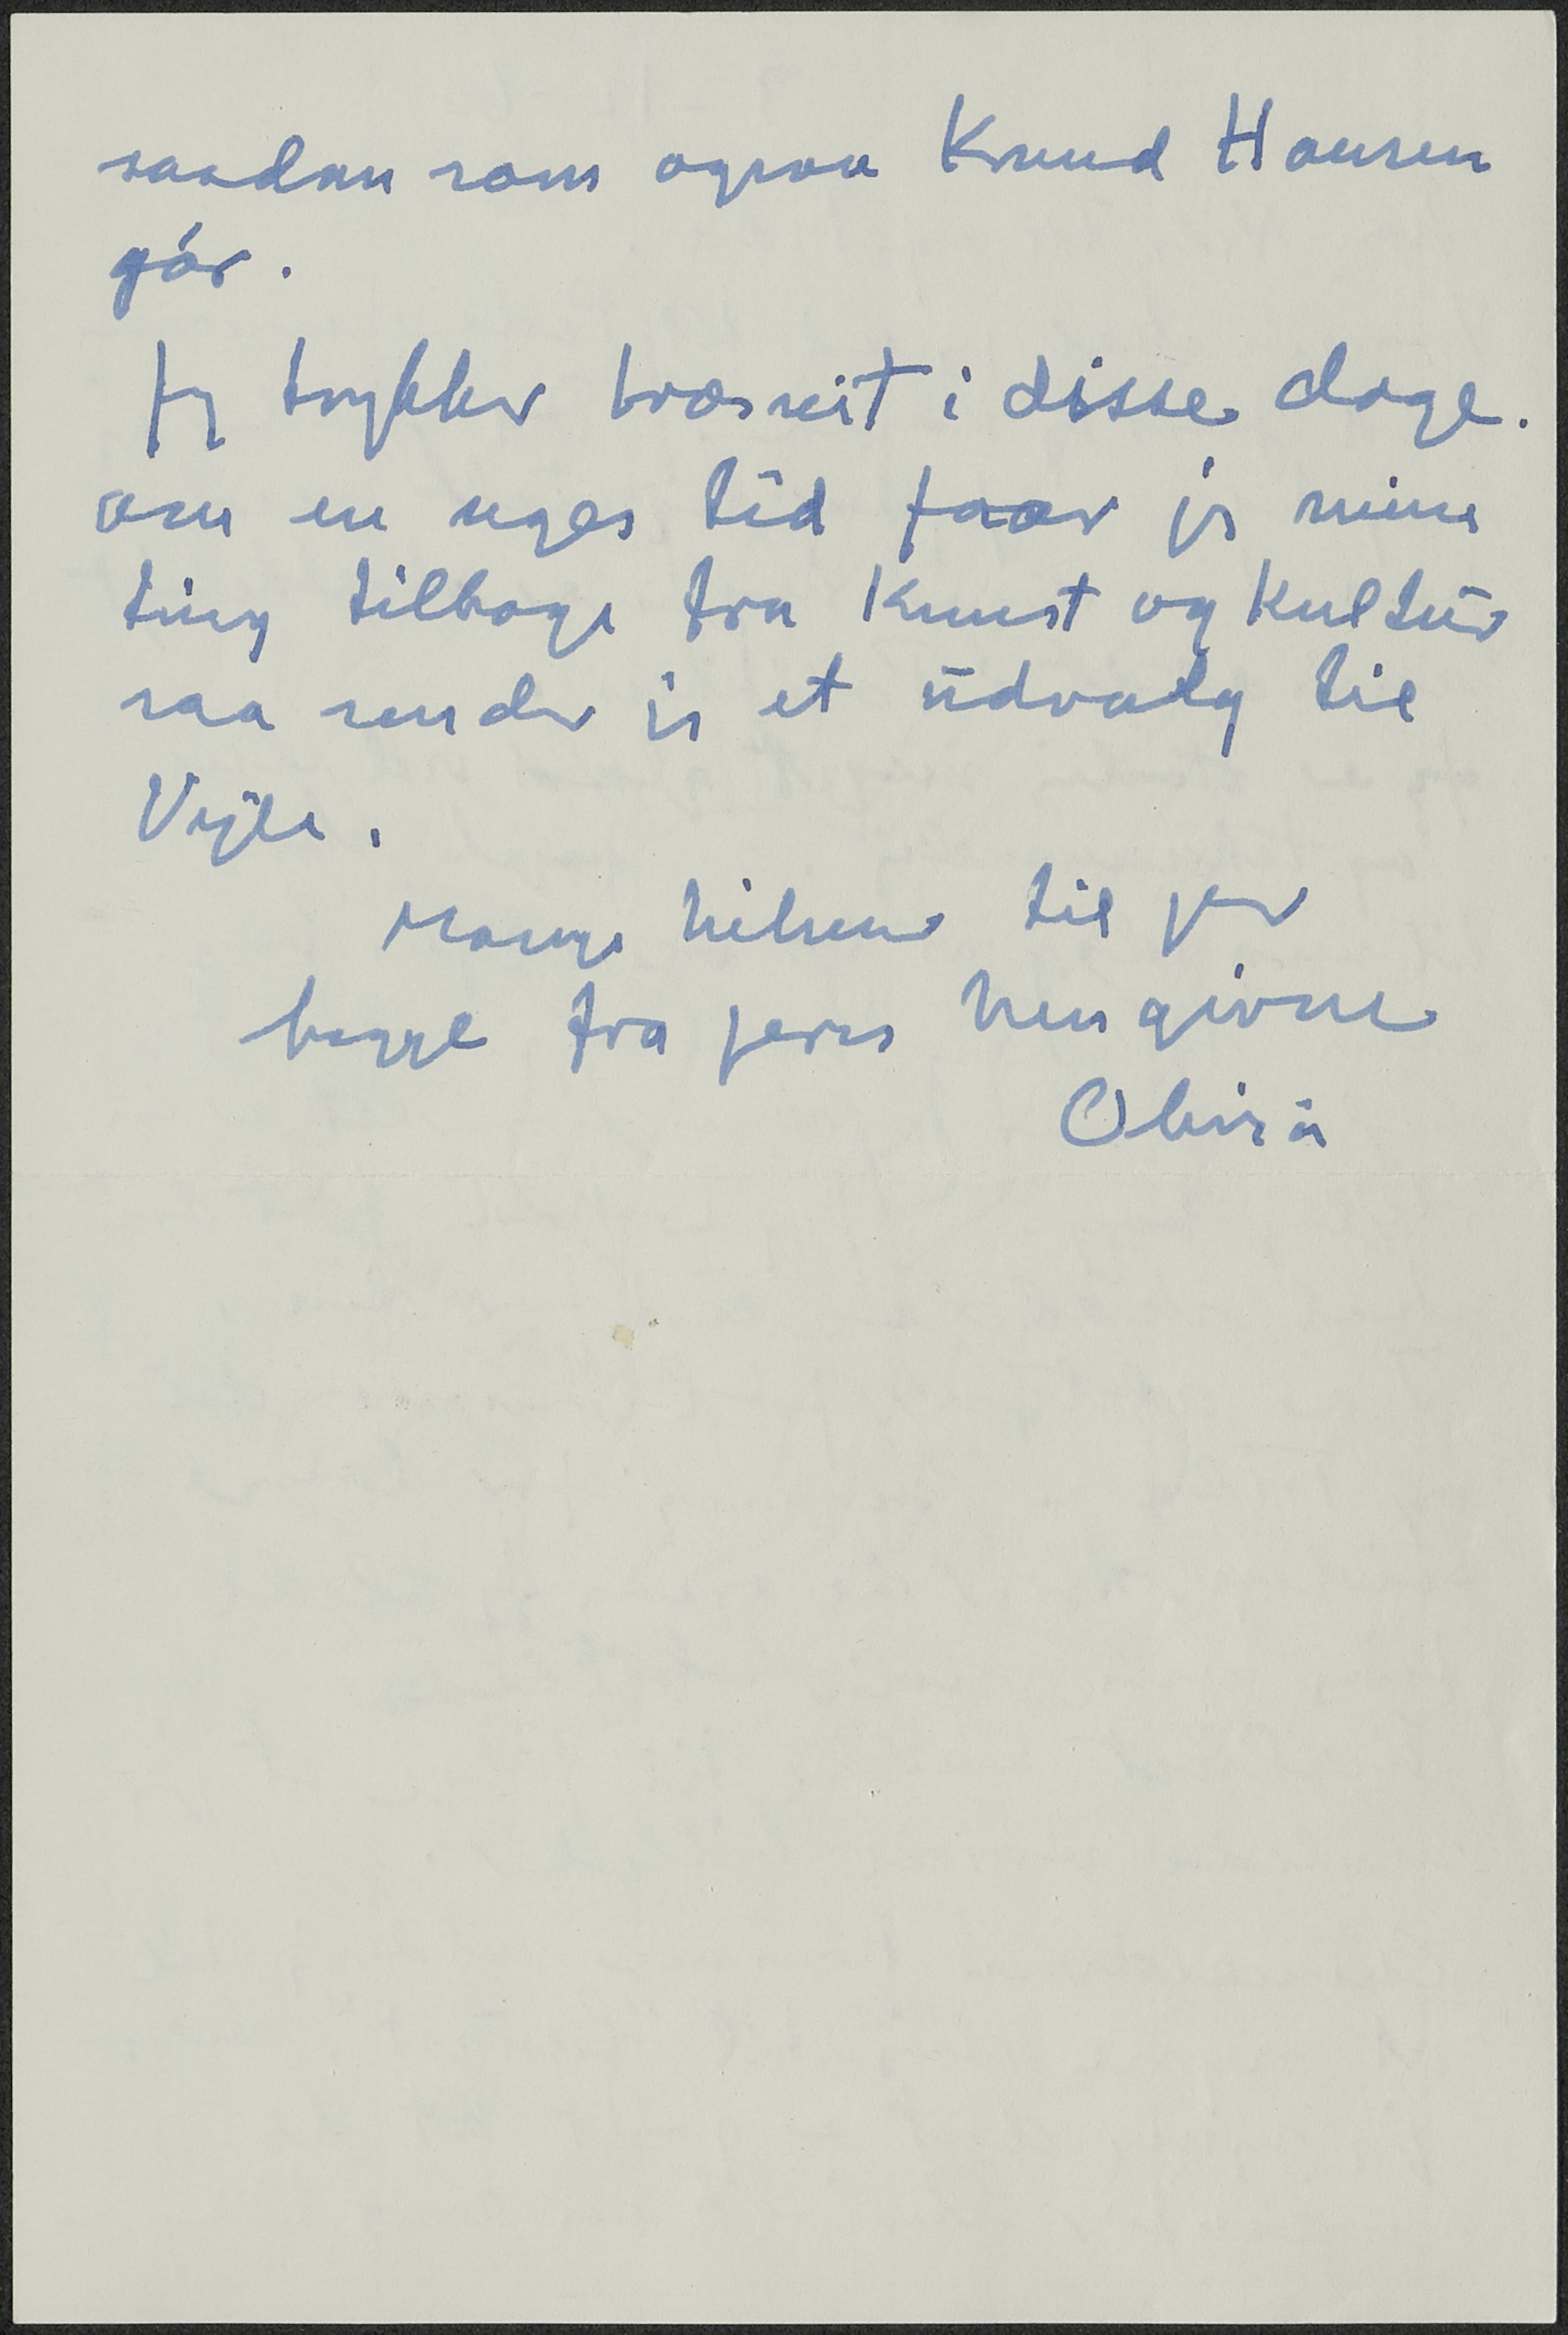 saadan som ogsaa Knud Hansen
gör.
Jeg trykker træsnit i disse dage.
om en uges tid faar jeg mine
ting tilbage fra Kunst og Kultur
saa sender jeg et udvalg til
Vejle.
Mange hilsener til jer
begge fra jeres hengivne
Olivia